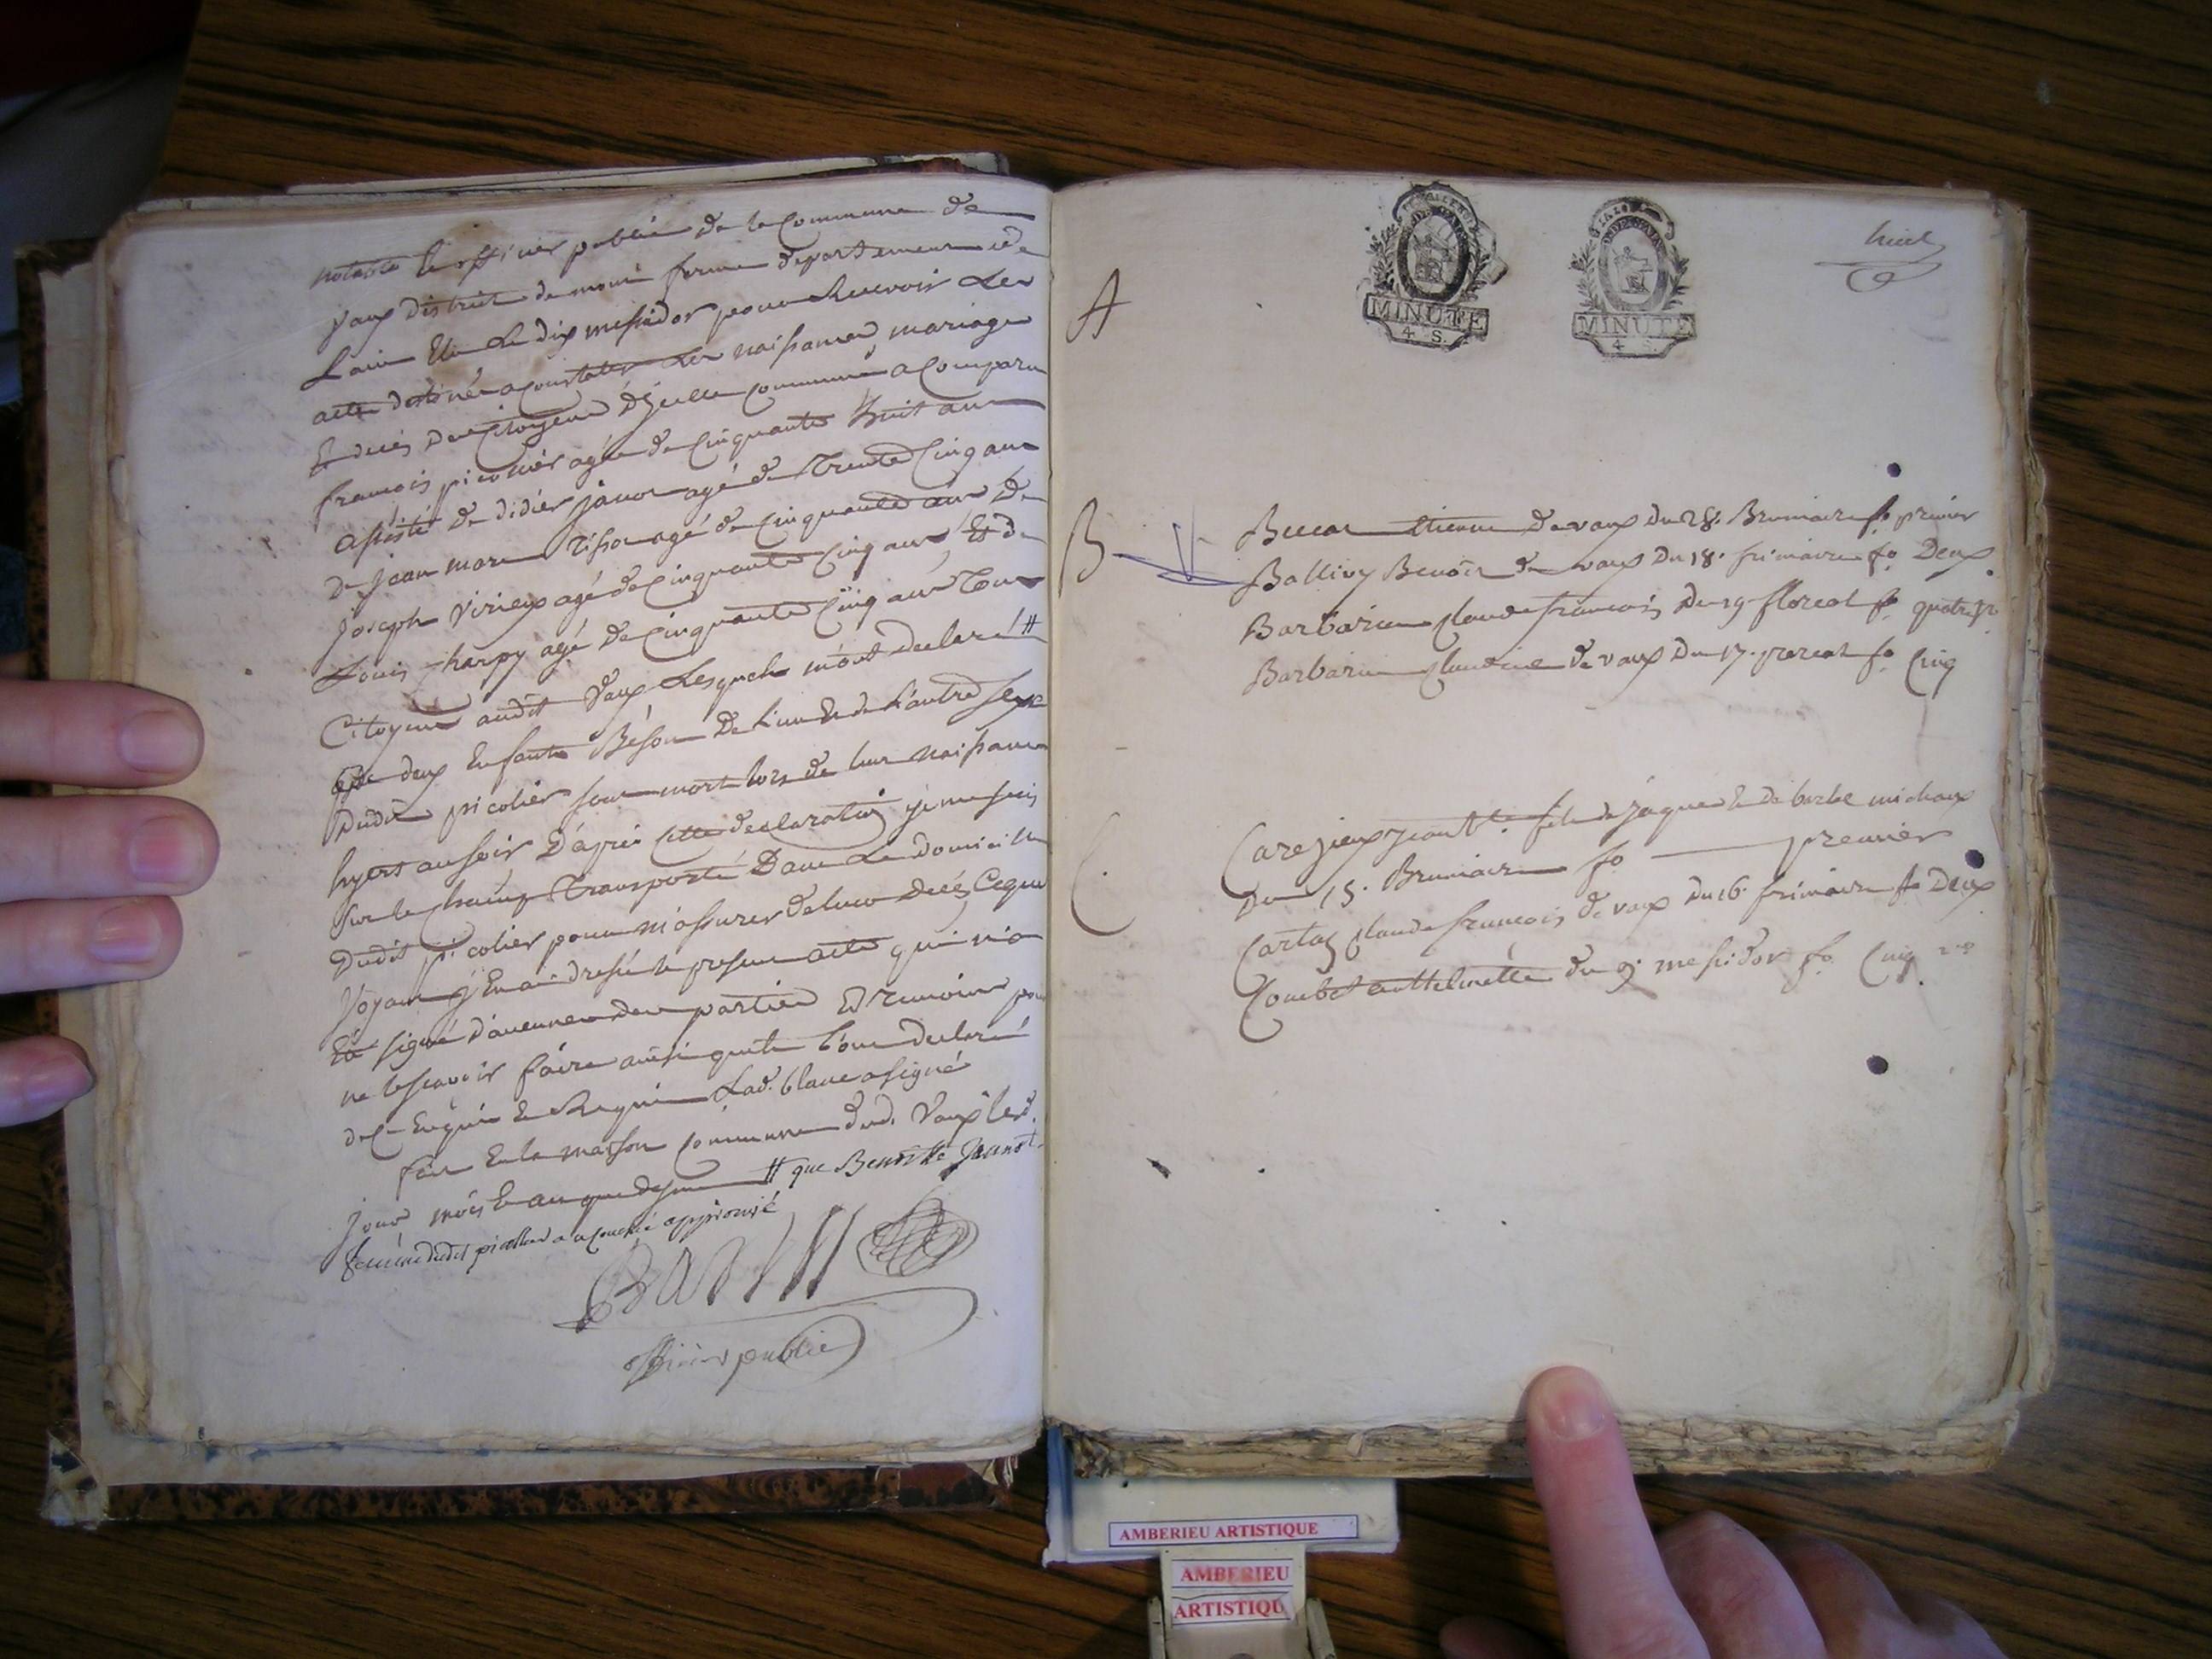 notable et officier public de la Commune de
Vaux district de mont ferme departement de
Lain Elu le dix messidor pour Recevoir Les
actes destinés a constater Les naissances, mariages
Et decés des Citoyens d'jcelle commune a Comparu
francois picolier agé de Cinquante huit ans
assisté de didier janot agé de Trente Cinq ans
de jean marie Tissot agé de Cinquante ans De
joseph Virieux agé de Cinquante Cinq ans, Et de
Louis charpy agé de Cinquante Cinq ans Tous
Citoyens audit Vaux Lesquels m'ont declaré #
que deux Enfants Béson De l'un Et de L'autre sexe
Dudit picolier sont mort lors de leur naissance
hyert au soir D'aprés cette declaration je me suis
sur le champ Transporté Dans Le domicille
Dudit picolier pour m'assurer de leur decés, Ce que
Voyant j'En ai dressé le present acte qui n'a
Eté signé d'aucunes des parties Et Temoins pour
ne le scavoir faire ainsi quils l'ont declaré
de ce Enquis Et Requis Lad. blanc asigné
fait En la maison commune dud. Vaux Lesd.
jour mois Et an que dessus # que Benoitte Janot
femme dudit picolier a acouché approuvé
Barell
officier public
MINUTE
4 S.
MINUTE
4 S.
huit
A
B
Beccat Etienne de vaux du 28. Brumaire fo. premier
Ballivy Benoit de vaux Du 18. frimaire fo. Deux
Barbarin Claude francois Du 19 floreal fo. quatre
Barbarin Claudine de vaux Du 17. prereal fo. Cinq
C
fils de Jaques Et de barbe michaux
Du 15. Brumaire fo premier
Claude francois de vaux Du 16. frimaire fo Deux
Combet anthelmette du 9. messidor fo. Cinq
AMBERIEU ARTISTIQUE
AMBERIEU
ARTISTIQU